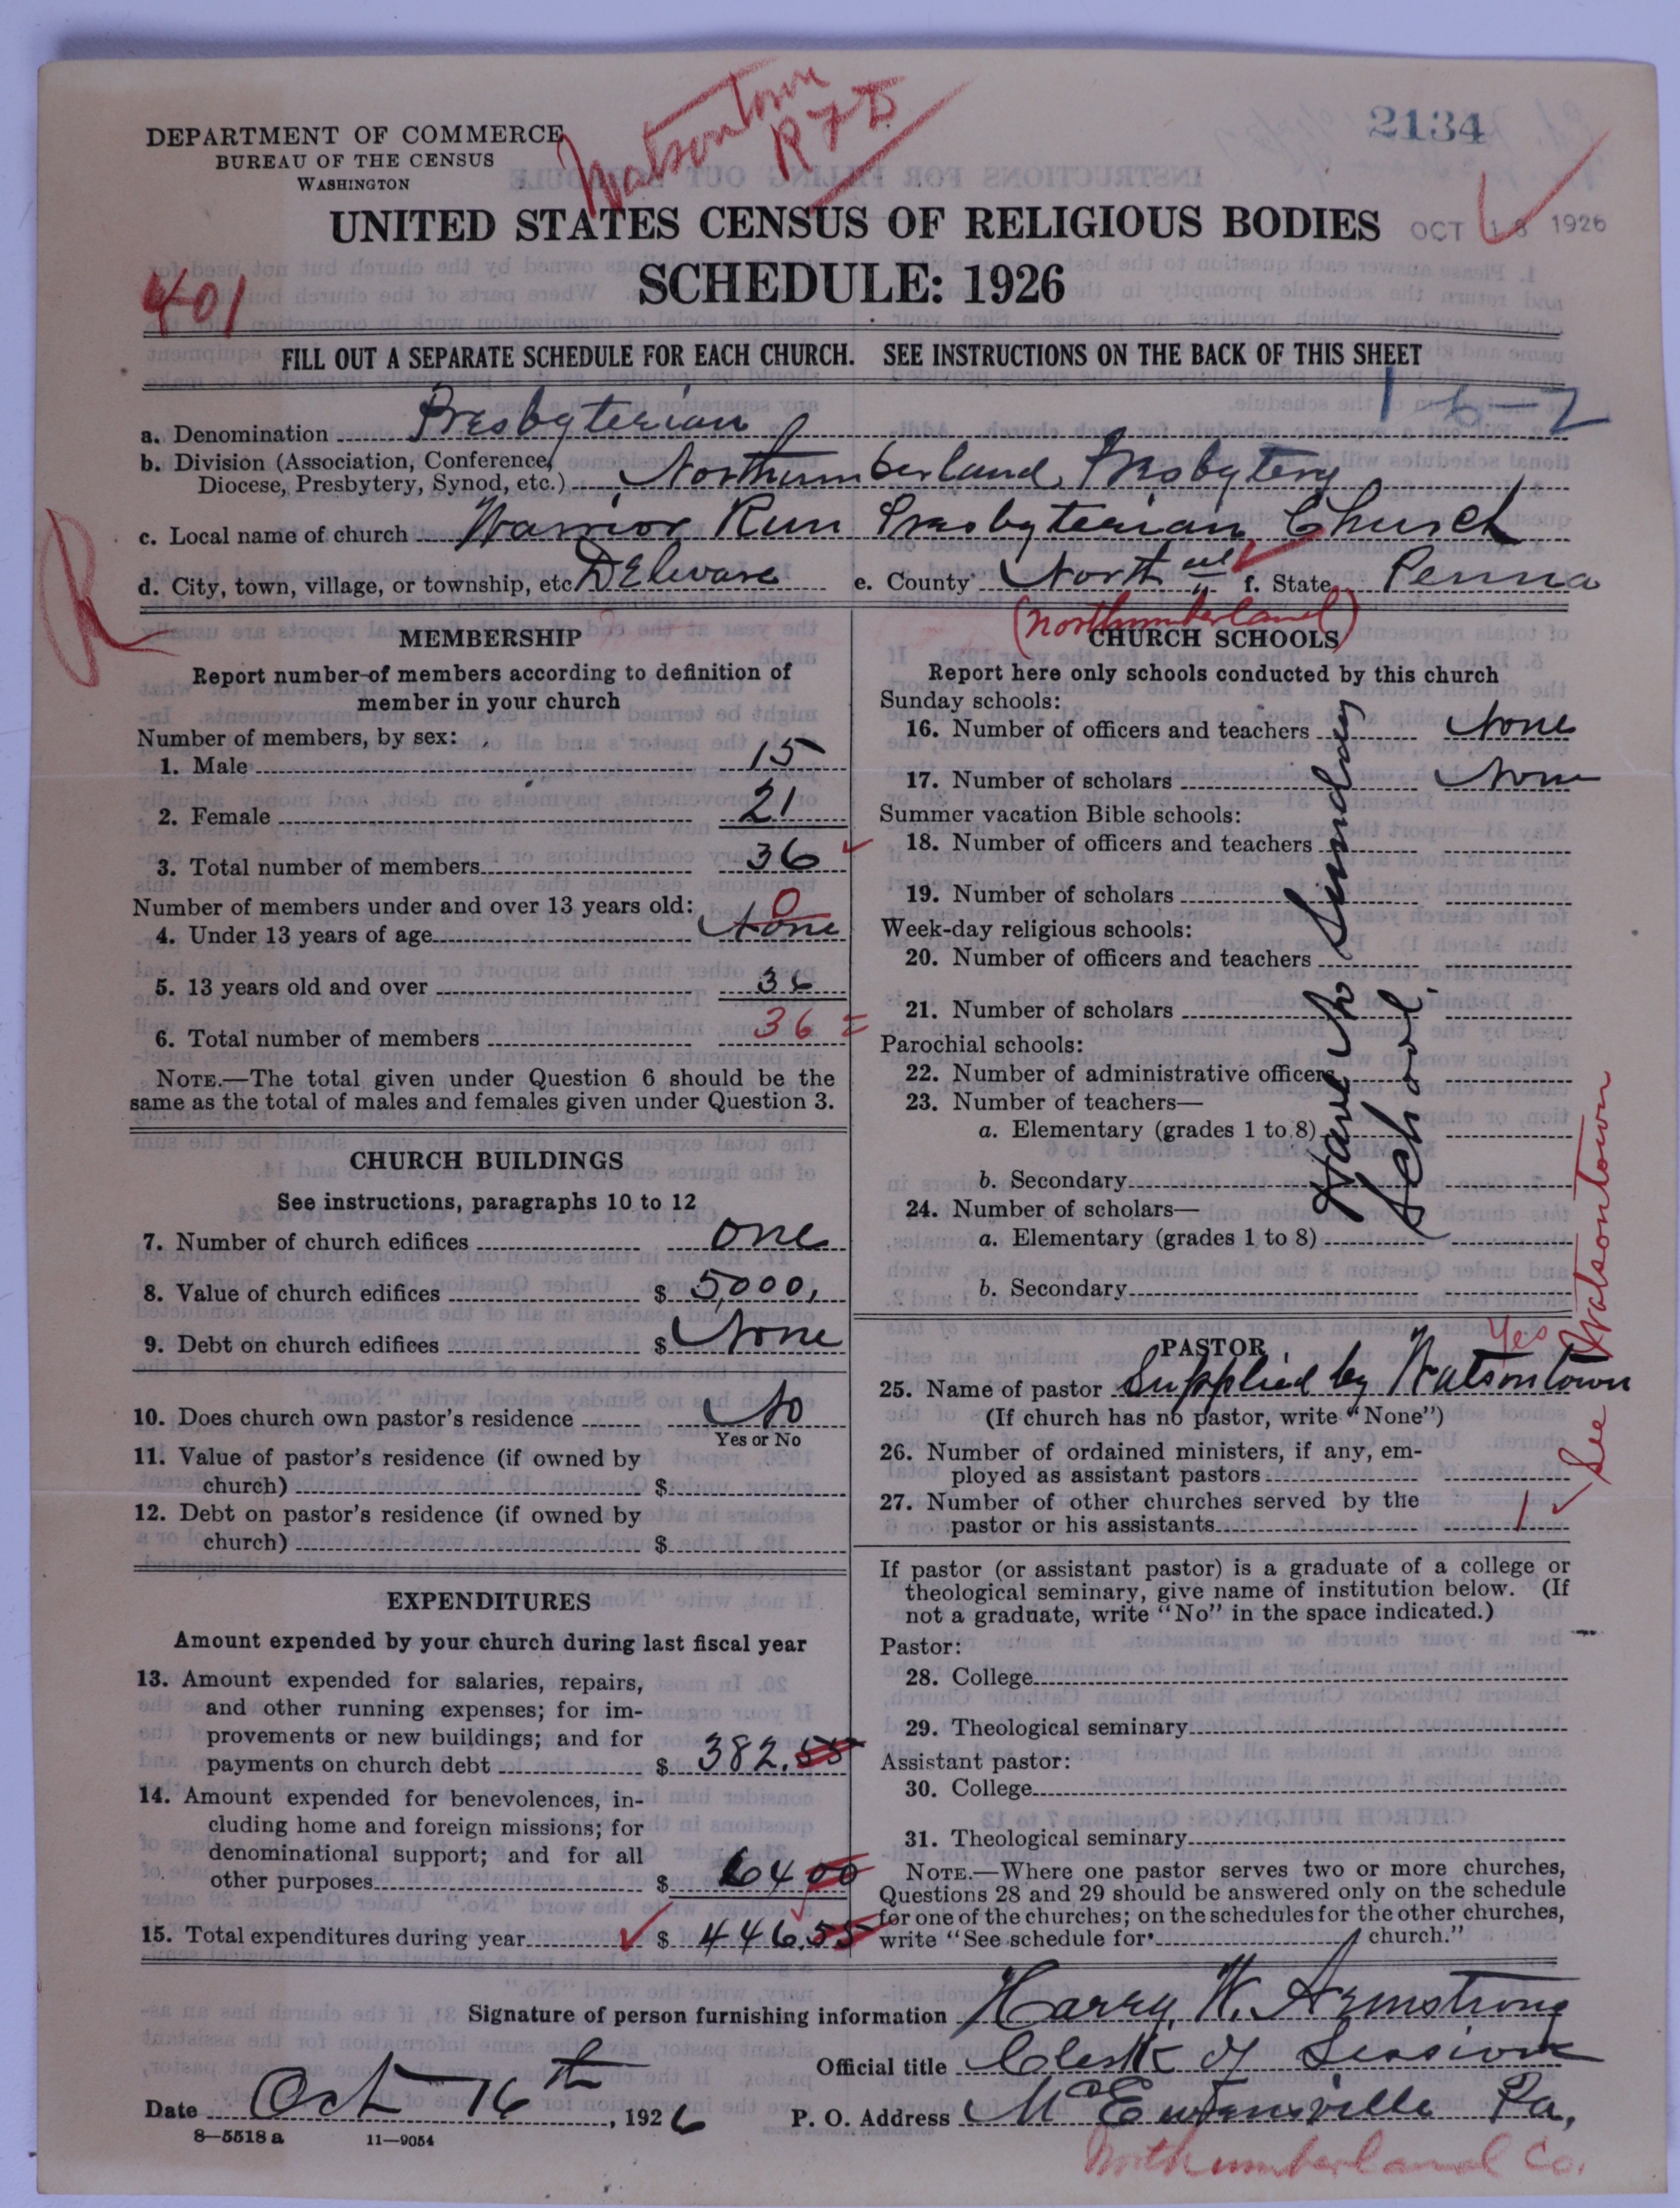 Watsontown
R F D
2134
DEPARTMENT OF COMMERCE
BUREAU OF THE CENSUS
WASHINGTON
UNITED STATES CENSUS OF RELIGIOUS BODIES
OCT 18 1926
SCHEDULE: 1926
401
FILL OUT A SEPARATE SCHEDULE FOR EACH CHURCH. SEE INSTRUCTIONS ON THE BACK OF THIS SHEET
1-6-2
a. Denomination Presbyterian
b. Division (Association, Conference,
Diocese, Presbytery, Synod, etc.) Northumberland Presbytery
c. Local name of church Warrior Run Presbyterian Church
R
d. City, town, village, or township, etc DElware e. County North'ud f. State Penna
(Northumberland)
MEMBERSHIP
Report number of members according to definition of
member in your church
Number of members, by sex:
1. Male 15
2. Female 21
3. Total number of members 36
Number of members under and over 13 years old:
0
4. Under 13 years of age None
5. 13 years old and over 36
6. Total number of members 36 =
NOTE.—The total given under Question 6 should be the
same as the total of males and females given under Question 3.
CHURCH BUILDINGS
See instructions, paragraphs 10 to 12
7. Number of church edifices one
8. Value of church edifices $ 5000,
9. Debt on church edifices $ None
10. Does church own pastor's residence No
Yes or No
11. Value of pastor's residence (if owned by
church) $
12. Debt on pastor's residence (if owned by
church) $
EXPENDITURES
Amount expended by your church during last fiscal year
13. Amount expended for salaries, repairs,
and other running expenses; for im-
provements or new buildings; and for
payments on church debt $ 382.55
14. Amount expended for benevolences, in-
cluding home and foreign missions; for
denominational support; and for all
other purposes $ 64 00
15. Total expenditures during year $ 446.55
CHURCH SCHOOLS
Report here only schools conducted by this church
Sunday schools:
16. Number of officers and teachers None
17. Number of scholars None
Summer vacation Bible schools:
18. Number of officers and teachers
19. Number of scholars
Week-day religious schools:
20. Number of officers and teachers
21. Number of scholars
Parochial schools:
22. Number of administrative officers
23. Number of teachers—
a. Elementary (grades 1 to 8)
b. Secondary
24. Number of scholars—
a. Elementary (grades 1 to 8)
b. Secondary
Have No Sunday
School.
PASTOR
Yes
25. Name of pastor Supplied by Watsontown
(If church has no pastor, write "None")
See Watsontown
26. Number of ordained ministers, if any, em-
ployed as assistant pastors
27. Number of other churches served by the
pastor or his assistants 1
If pastor (or assistant pastor) is a graduate of a college or
theological seminary, give name of institution below. (If
not a graduate, write "No" in the space indicated.)
Pastor:
28. College
29. Theological seminary
Assistant pastor:
30. College
31. Theological seminary
NOTE.—Where one pastor serves two or more churches,
Questions 28 and 29 should be answered only on the schedule
for one of the churches; on the schedules for the other churches,
write "See schedule for church."
Signature of person furnishing information Harry W. Armstrong
Official title Clerk of Session
Date Oct 16th, 1926
P. O. Address McEwensville Pa,
8—5518 a 11—9054
Northumberland Co.